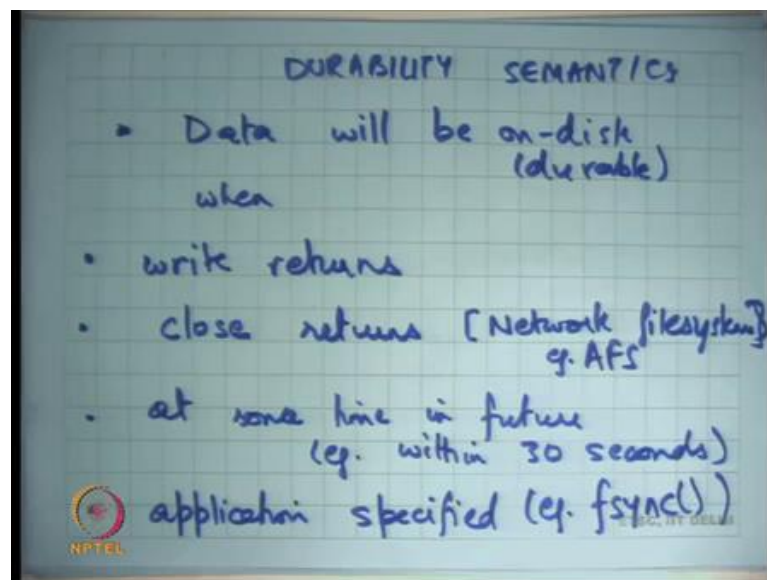 DURABILITY SEMANTICS
• Data will be on-disk
(durable)
when
• write returns
• close returns [Network filesystem]
eg. AFS
• at some time in future
(eg. within 30 seconds)
application specified (eg. fsync())
NPTEL
IIT DELHI